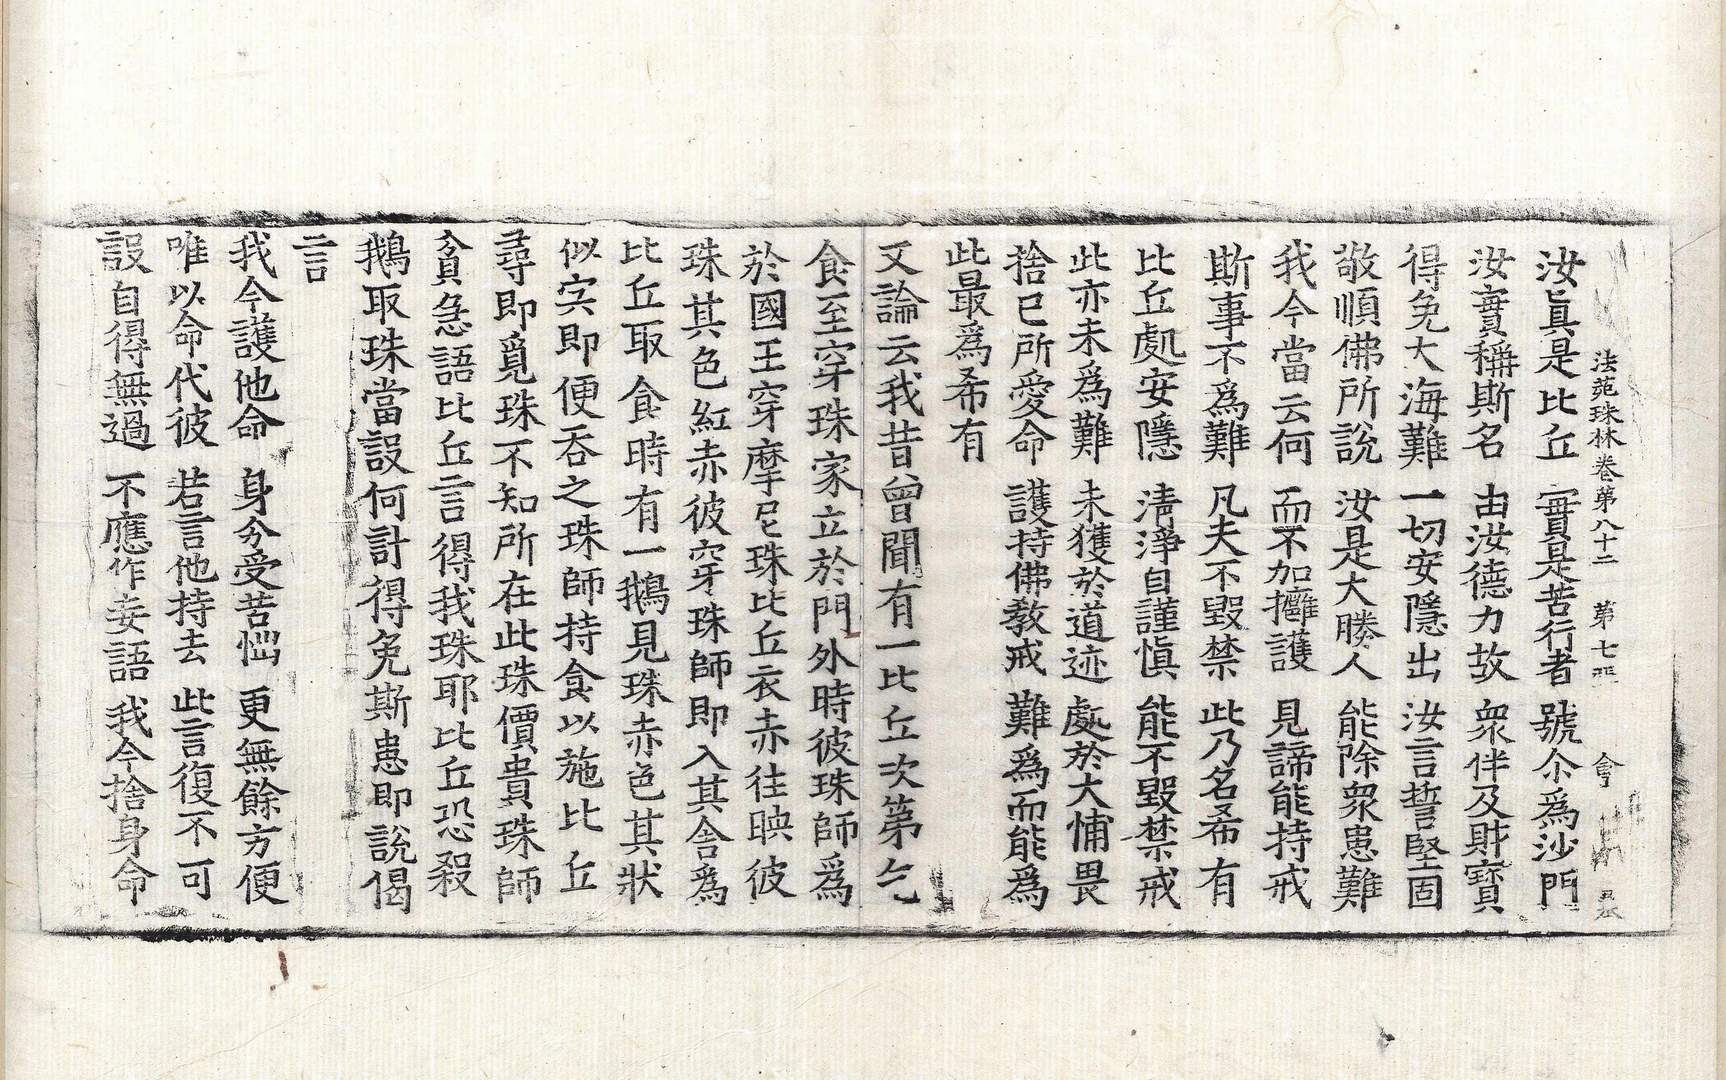 法苑珠林卷第八十二 第七 會
汝眞是比丘 實是苦行者 號尒爲沙門
汝實稱斯名 由汝德力故 衆伴及財寶
得免大海難 一切安隱出 汝言誓堅固
敬順佛所說 汝是大勝人 能除衆患難
我今當云何 而不加擁護 見諦能持戒
斯事不爲難 凡夫不毀禁 此乃名希有
比丘處安隱 清淨自謹愼 能不毀禁戒
此亦未爲難 未獲於道迹 處於大怖畏
捨已所愛命 護持佛教戒 難爲而能爲
此最爲希有
又論云我昔曾聞有一比丘次第乞
食至穿珠家立於門外時彼珠師爲
於國王穿摩尼珠比丘衣赤往映彼
珠其色紅赤彼穿珠師即入其舍爲
比丘取食時有一鵝見珠赤色其狀
似宍即便吞之珠師持食以施比丘
尋即覓珠不知所在此珠價貴珠師
貧急語比丘言得我珠耶比丘恐殺
鵝取珠當設何計得免斯患即說偈
言
我今護他命 身分受苦惱 更無餘方便
唯以命代彼 若言他持去 此言復不可
設自得無過 不應作妄語 我今捨身命